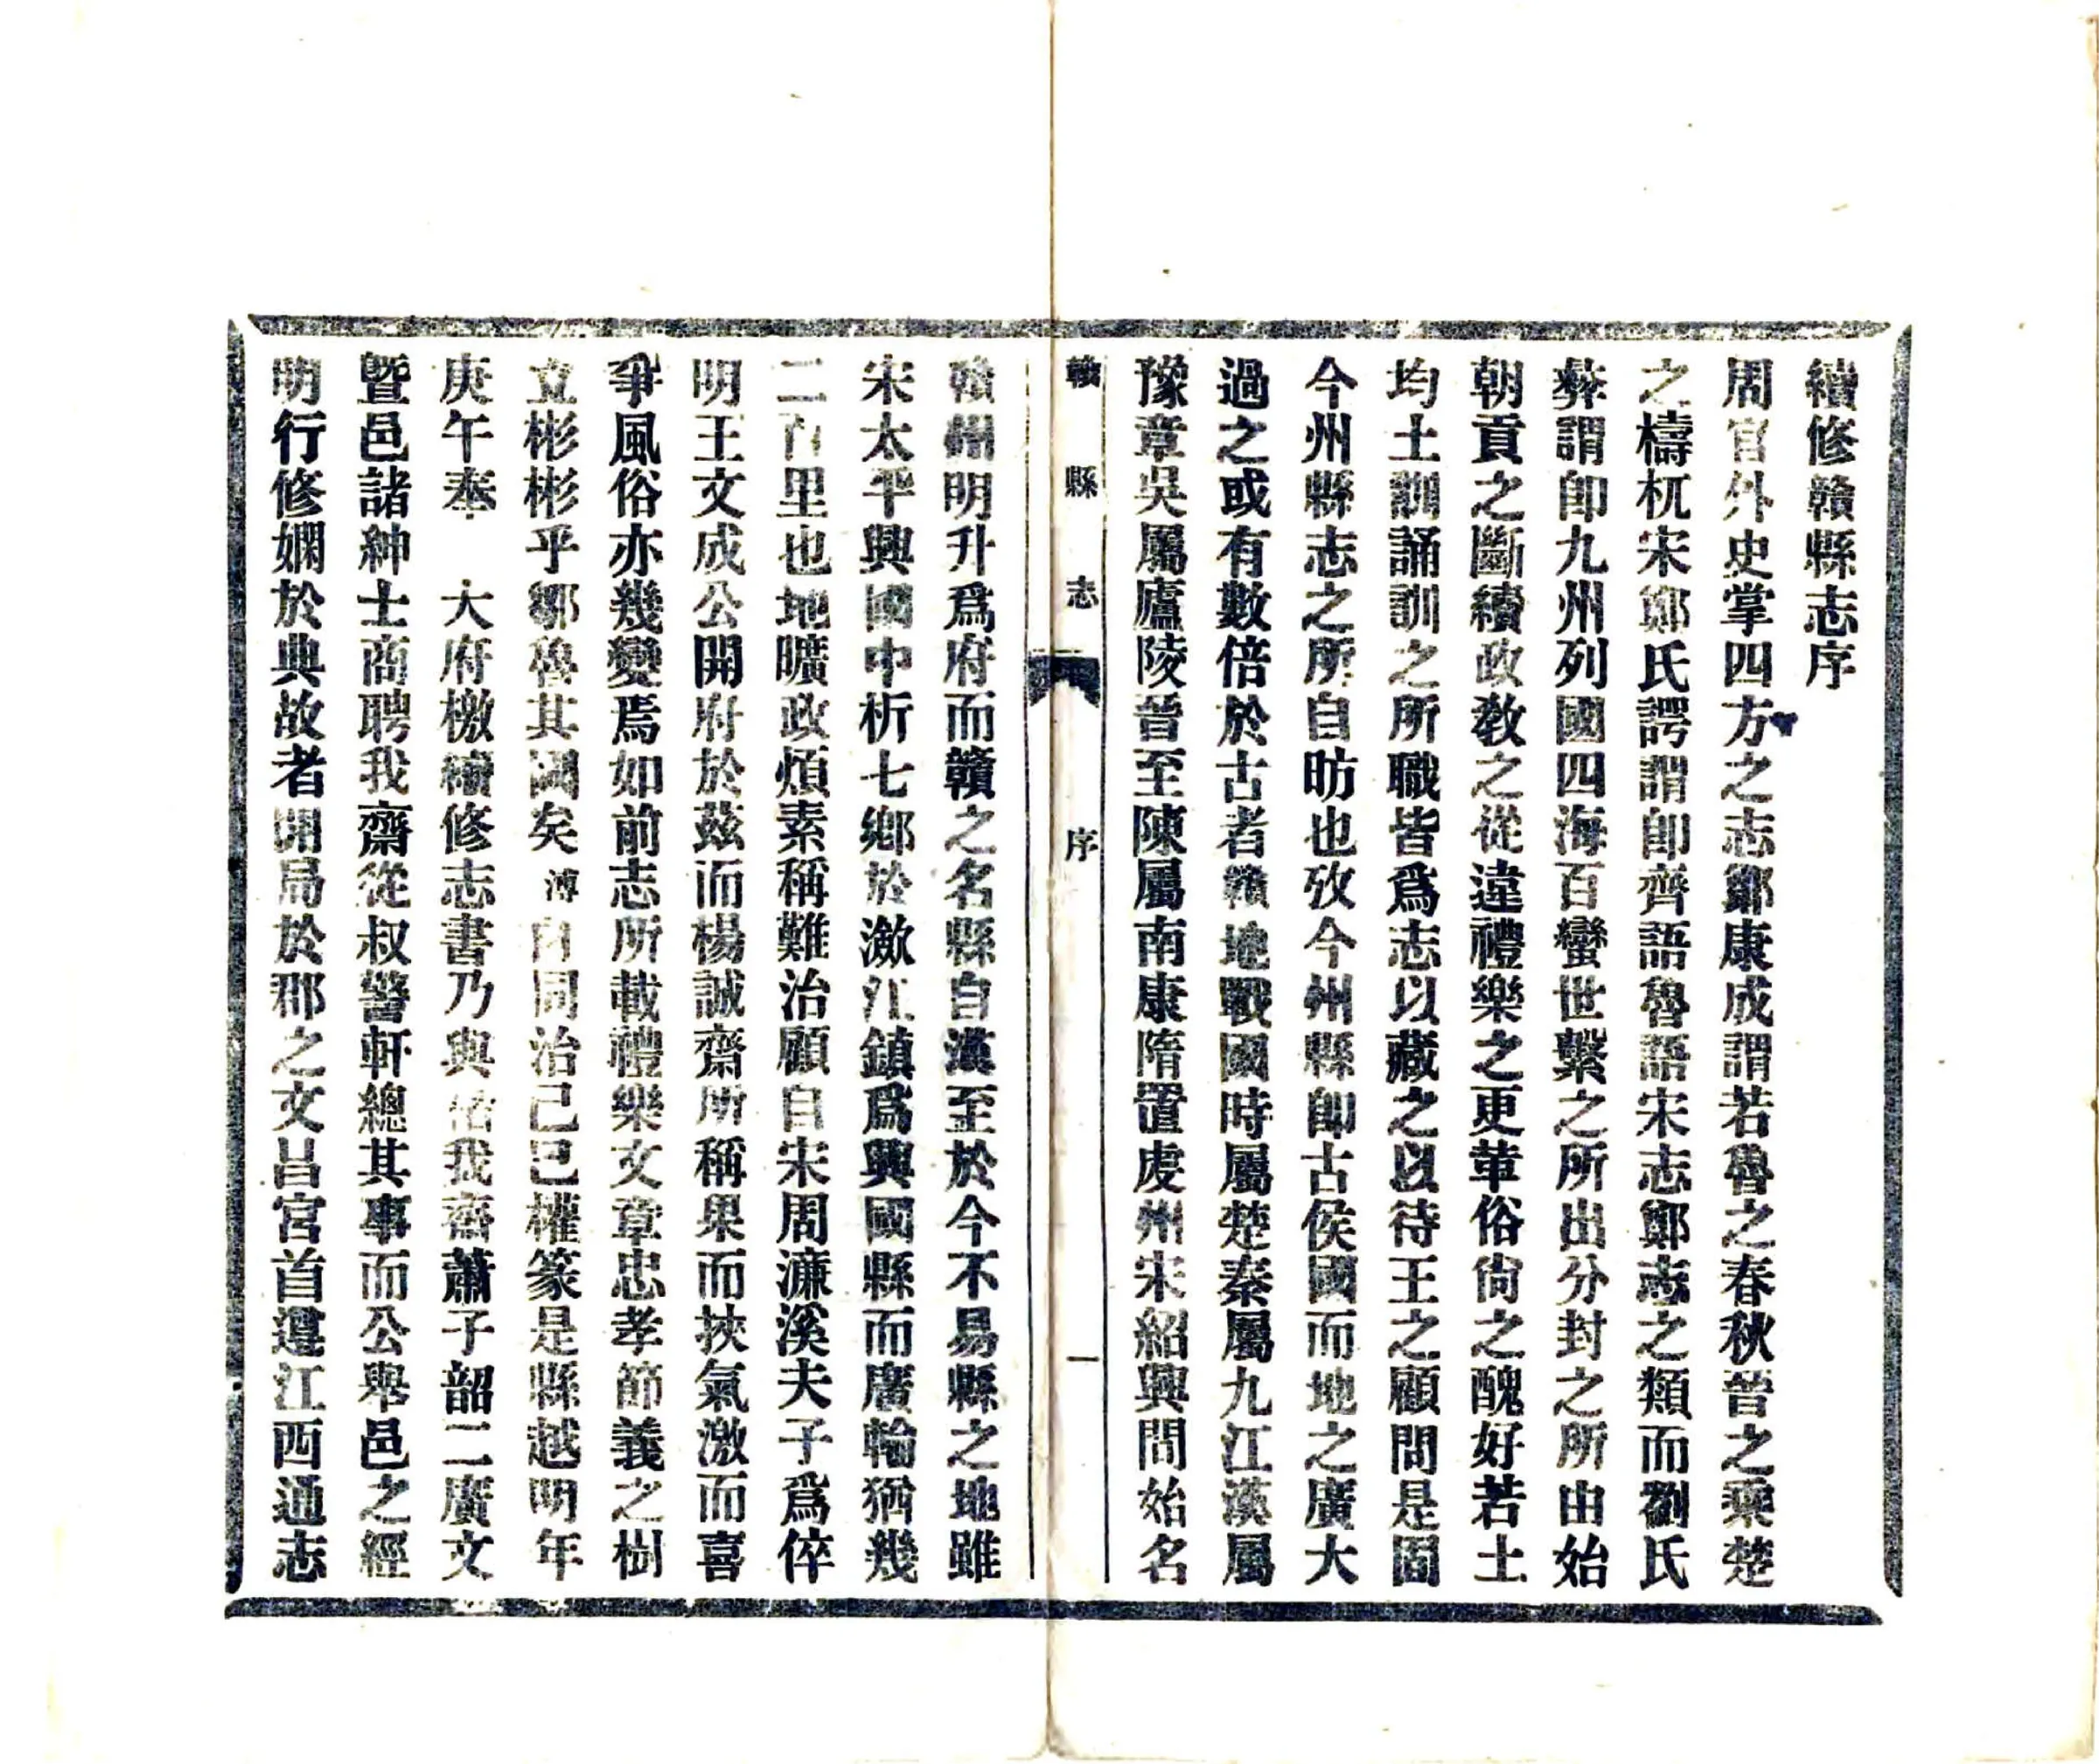 續修贛縣志序
周官外史掌四方之志鄭康成謂若魯之春秋晉之乘楚
之檮杌宋鄭氏諤謂卽齊語魯語宋志鄭志之類而劉氏
彝謂卽九州列國四海百蠻世繫之所出分封之所由始
朝貢之斷續政敎之從違禮樂之更革俗尙之醜好若土
均土訓誦訓之所職皆爲志以藏之以待王之顧問是固
今州縣志之所自昉也攷今州縣卽古侯國而地之廣大
過之或有數倍於古者贛地戰國時屬楚秦屬九江漢屬
豫章吳屬廬陵晉至陳屬南康隋置虔州宋紹興間始名
贛縣志
序
一
贛州明升爲府而贛之名縣自漢至於今不易縣之地雖
宋太平興國中析七鄕於瀲江鎮爲興國縣而廣輪猶幾
二百里也地曠政煩素稱難治顧自宋周濂溪夫子爲倅
明王文成公開府於茲而楊誠齋所稱果而挾氣激而喜
爭風俗亦幾變焉如前志所載禮樂文章忠孝節義之樹
立彬彬乎鄒魯其國矣溥自同治己巳權篆是縣越明年
庚午奉　大府檄續修志書乃與 我齋蕭子韶二廣文
曁邑諸紳士商聘我齋從叔警軒總其事而公舉邑之經
明行修嫻於典故者開局於郡之文昌宮首遵江西通志